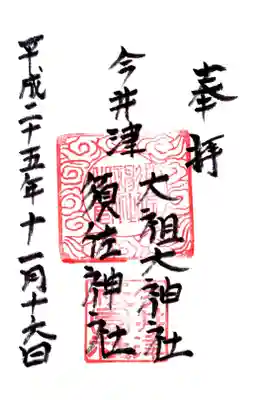 奉拝
大祖大神社
今井津
須佐神社
平成二十五年十一月十六日